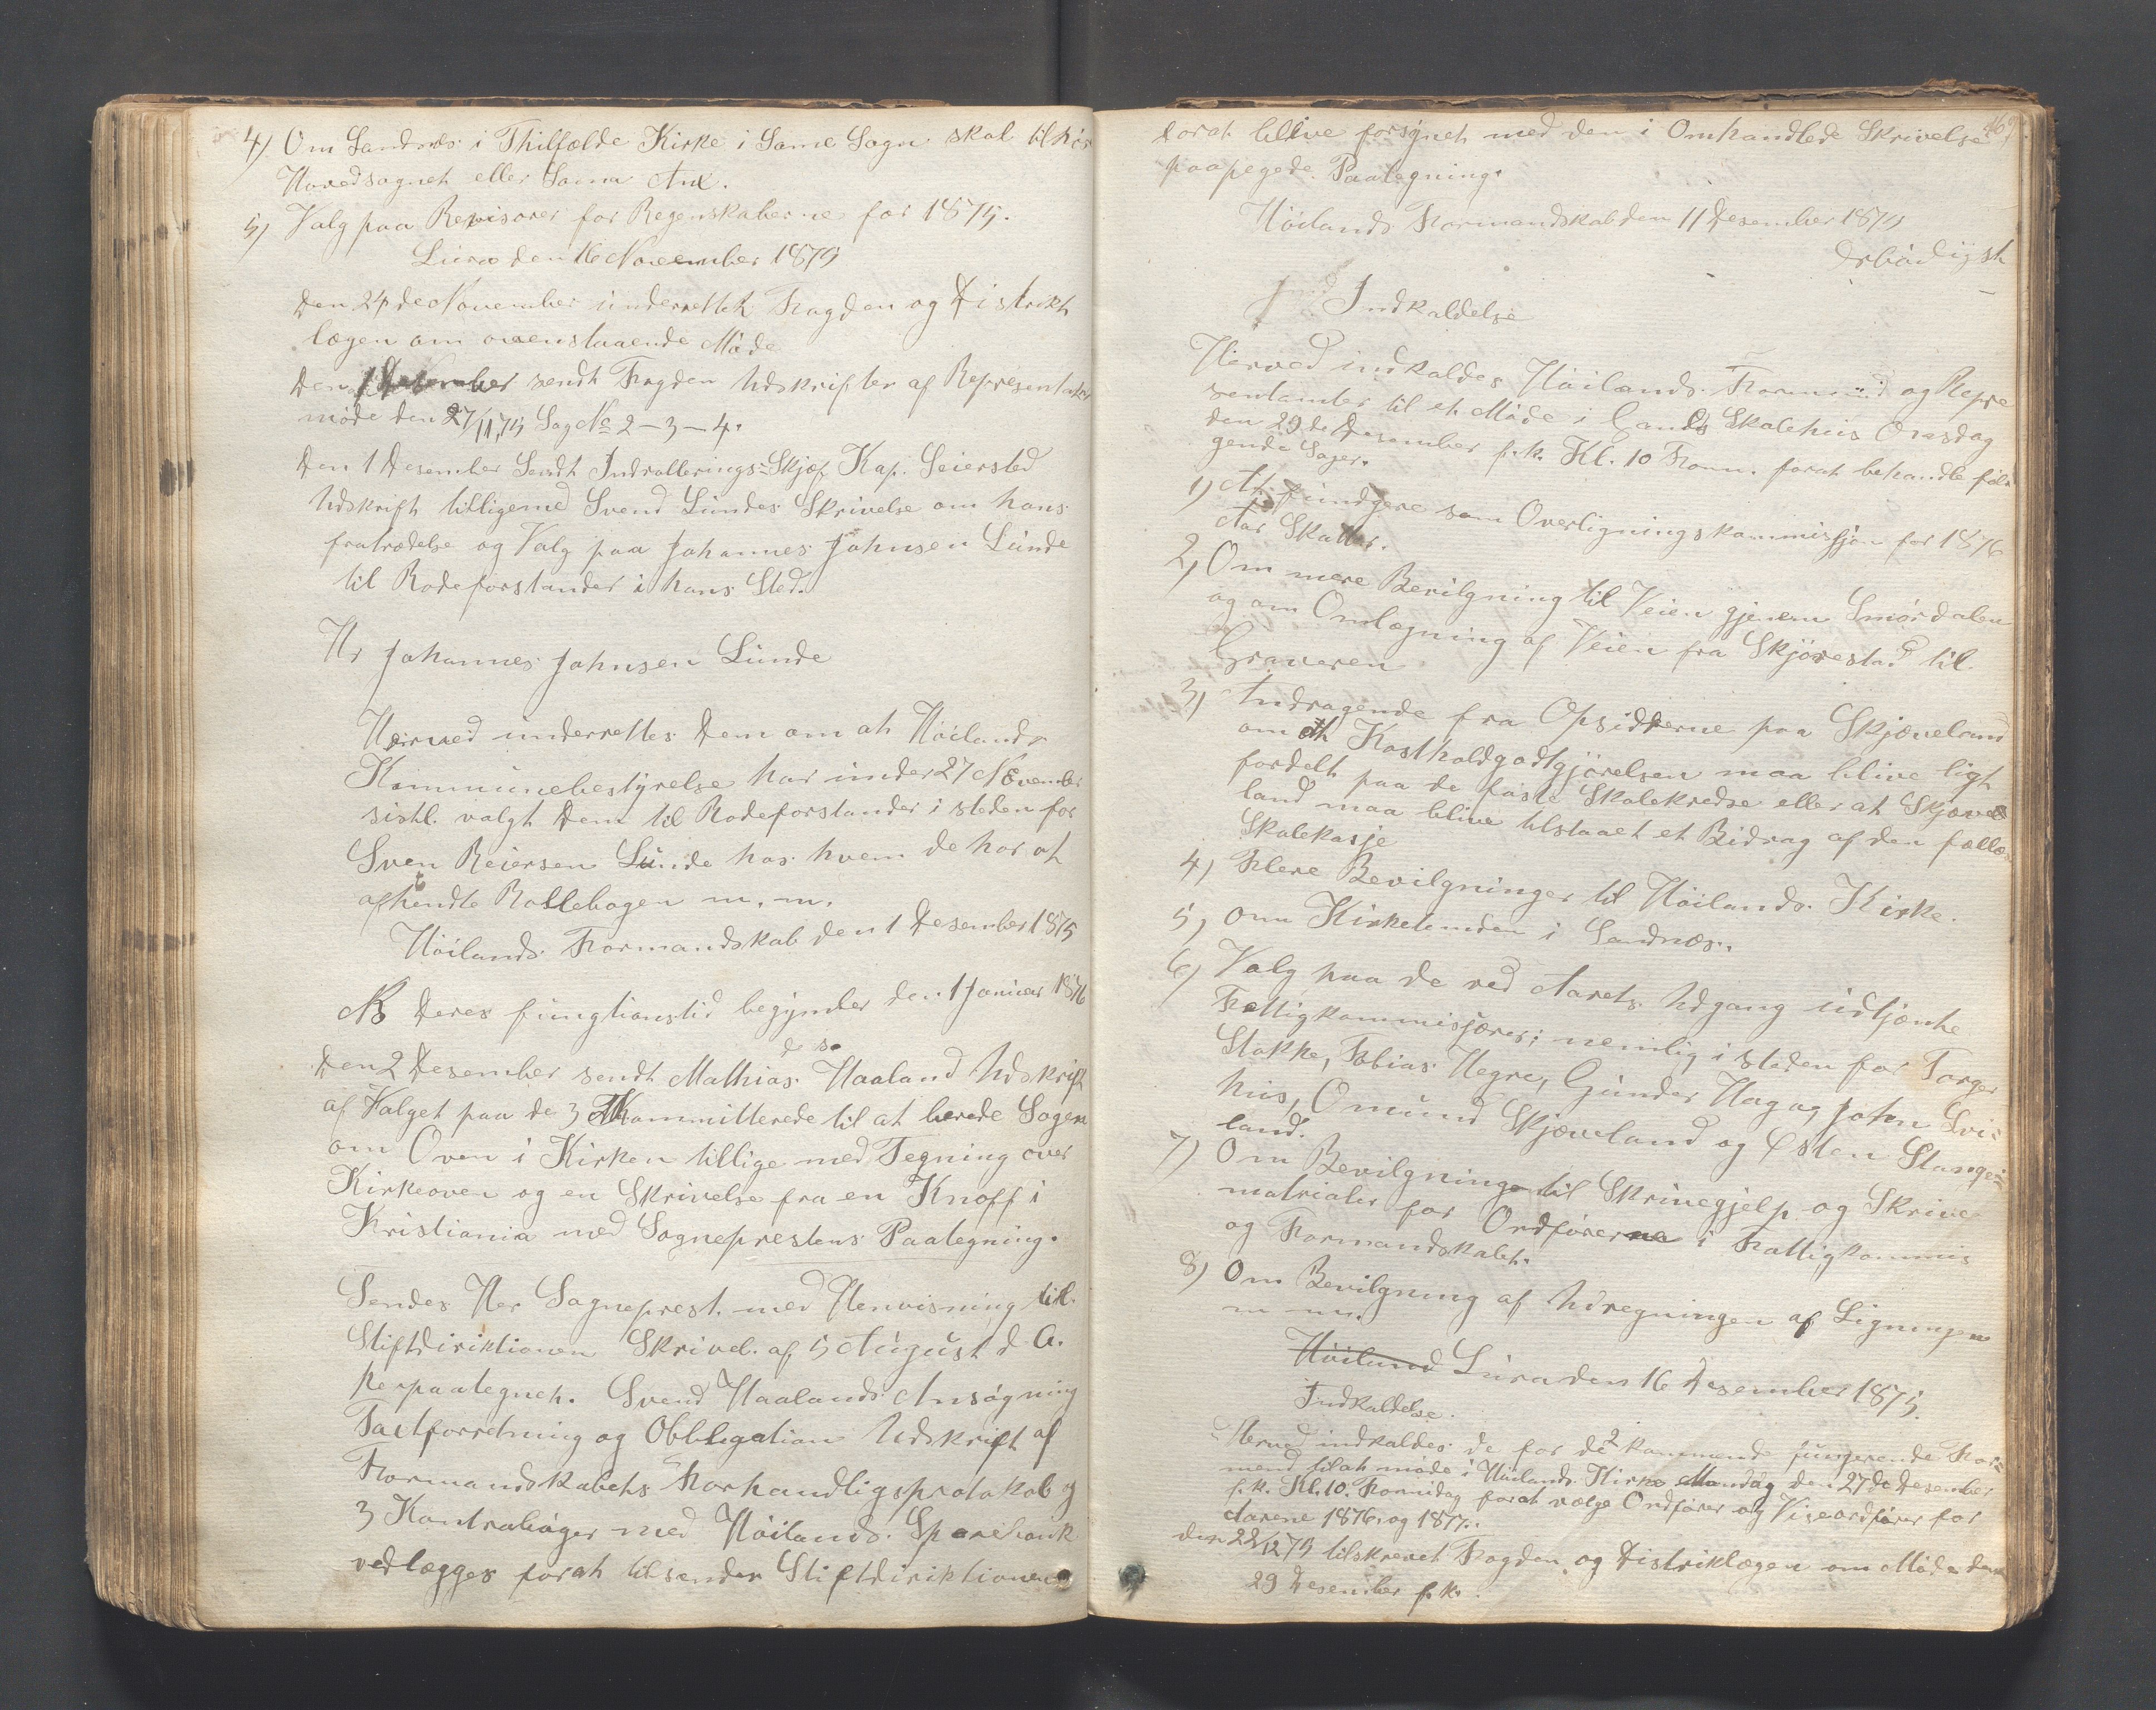 4) Om Sandnes i Thilfælde Kirke i Same Sogn skal tilhör
Hovedsognet eller Soma Anx.
5) Valg paa Revisorer for Regenskaberne for 1875.
Lura den 16 November 1875
Den 24de November underrettet Fogden og Distrikt
lægen om ovenstaaende Möde
Den 1 Desember sendt Fogden Udskrifter af Representanter
möde den 27/11 75 Sag No 2-3-4.
Den 1 Desember Sendt Indrullerings-Skjef Kap. Seiersted
Udskrift tilligemed Svend Lundes Skrivelse om hans
fratrædelse og Valg paa Johannes Johnsen Lunde
til Rodeforstander i hans Sted.
Hr Johannes Johnsen Lunde
Herved underrettes Dem om at Höilands
Kommunebestyrelse har under 27 November
sistl. valgt Dem til Rodeforstander i steden for
Sven Reiersen Lunde hos hvem de har at
afhendte Rollebogen m. m.
Höilands Formandskab den 1 Desember 1875
NB Deres fungtionstid begynder den 1 Januar 1876
d. s.
Den 2 Desember sendt Mathias Haaland Udskrift
af Valget paa de 3 Kommitterede til at berede Sagen
om Oven i Kirken tillige med Tegning over
Kirkeoven og en Skrivelse fra en Knoff i
Kristiania med Sogneprestens Paategning.
Sendes Her Sogneprest med Henvisning til
Stiftdiriktionen Skrivel. af 5 August d. A.
herpaategnet. Svend Haalands Ansögning
Taxtforretning og Obbligation Udskrift af
Formandskabets Forhandligsprotokol og
3 Kontrabøger med Höilands Sparebank
vedlægges forat tilsendes Stiftdiriktionen
forat blive forsynet med den i Omhandlede Skrivelse
paapegede Paategning.
Höilands Formandskab den 11 Desember 1875
Erbödigst
Indkaldelse
Herved indkaldes Höilands Formend og Repre
sentanter til et Möde i Gands Skolehus Onsdag
den 29de Desember f.k. Kl. 10 Form. forat behandle föl
gende Sager.
1) At fundgere som Overligningskommissjon for 1876
Aar Skatter.
2) Om mere Bevilgning til Veien gjenem Smördalen
og om Omlægning af Veien fra Skjörestad til
Graveren
3) Andragende fra Opsidderne paa Skjæveland
om at Kostholdgodtgjörelsen maa blive ligt
fordelt paa de faste Skolekredse eller at Skjæve
land maa blive tilstaaet et Bidrag af den fælles
Skolekasje
4) Flere Bevilgninger til Höilands Kirke.
5) Om Kirketomten i Sandnes.
6) Valg paa de ved Aarets Udgang udtjente
Fattigkommisjærer; nemlig i steden for Torger
Stokke, Tobias Hegre, Gunder Hog og John Svi-
hus, Omund Skjæveland og Østen Stange-
land.
7) Om Bevilgninge til Skrivegjelp og Skrive
matrialer for Ordförerne i Fattigkommis
og Formandskabet.
8) Om Bevilgning af Udregningen af Ligningen
m m.
Höiland Lura den 16 Desember 1875.
Indkaldelse.
Herved indkaldes de for de 2 kommende fungerende For-
mend til at möde i Höilands Kirke Mandag den 27de Desember
f.k. Kl. 10 Formidag forat vælge Ordförer og Viseordförer for
Aarene 1876 og 1877.
den 22/12 75 tilskrevet Fogden og Distriklægen om Möde den
29 Desember f.k.